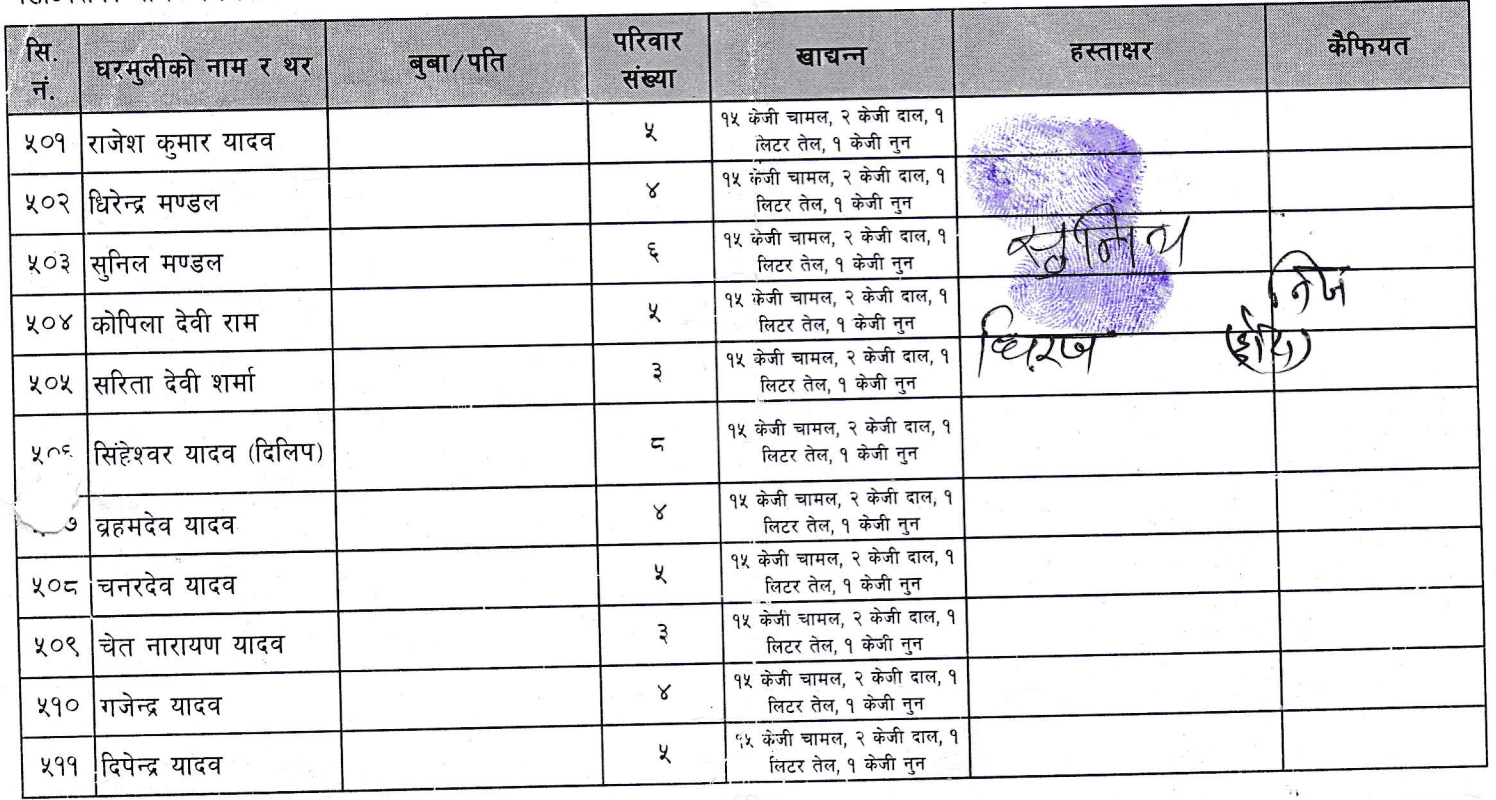 सि. नं. घरमुलीको नाम र थर बुबा/पति परिवार संख्या खाद्यन्न हस्ताक्षर कैफियत
५०१ राजेश कुमार यादव ५ १५ केजी चामल, २ केजी दाल, १
लिटर तेल, १ केजी नुन
५०२ धिरेन्द्र मण्डल ४ १५ केजी चामल, २ केजी दाल, १
लिटर तेल, १ केजी नुन
५०३ सुनिल मण्डल ६ १५ केजी चामल, २ केजी दाल, १
लिटर तेल, १ केजी नुन
५०४ कोपिला देवी राम ५ १५ केजी चामल, २ केजी दाल, १
लिटर तेल, १ केजी नुन
५०५ सरिता देवी शर्मा ३ १५ केजी चामल, २ केजी दाल, १
लिटर तेल, १ केजी नुन धिरज
सिंहेश्वर यादव (दिलिप) ८ १५ केजी चामल, २ केजी दाल, १
लिटर तेल, १ केजी नुन
७ व्रहमदेव यादव ४ १५ केजी चामल, २ केजी दाल, १
लिटर तेल, १ केजी नुन
५०८ चनरदेव यादव ५ १५ केजी चामल, २ केजी दाल, १
लिटर तेल, १ केजी नुन
५०९ चेत नारायण यादव ३ १५ केजी चामल, २ केजी दाल, १
लिटर तेल, १ केजी नुन
५१० गजेन्द्र यादव ४ १५ केजी चामल, २ केजी दाल, १
लिटर तेल, १ केजी नुन
५११ दिपेन्द्र यादव ५ १५ केजी चामल, २ केजी दाल, १
लिटर तेल, १ केजी नुन